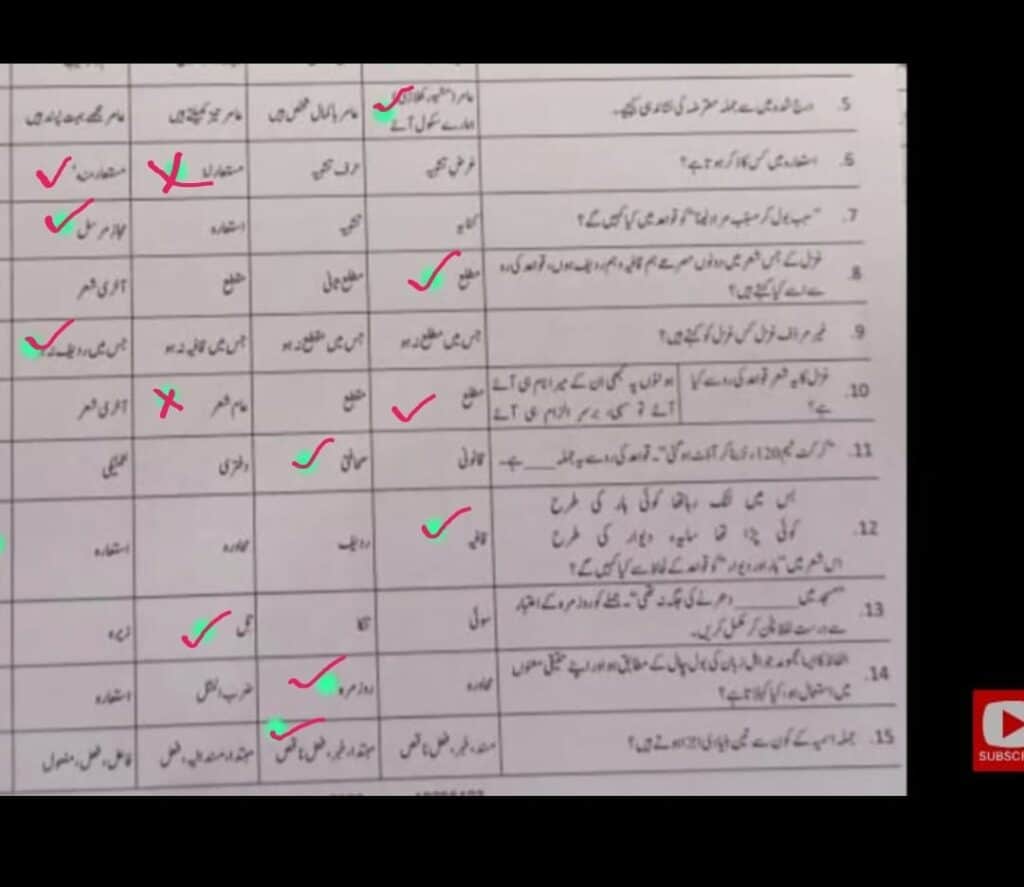 5. درج شدہ میں سے جملہ معترضہ کی نشاندہی کیجیے۔
عامر (مشہور کھلاڑی) ہمارے سکول آئے
عامر باکمال شخص ہیں
عامر تیز کھیلتے ہیں
عامر مجھے بہت پسند ہیں
6. استعارہ میں کس کا ذکر ہوتا ہے؟
غرض تشبیہ
حرف تشبیہ
مستعار لہٗ
مستعار منہ
7. "سبب بول کر مسبب مراد لینا" کو قواعد میں کیا کہیں گے؟
کنایہ
تشبیہ
استعارہ
مجاز مرسل
8. غزل کے جس شعر میں دونوں مصرعے ہم قافیہ و ہم ردیف ہوں، قواعد کی رو
سے اسے کیا کہتے ہیں؟
مطلع
مطلع ثانی
مقطع
آخری شعر
9. غیر مردف غزل کس غزل کو کہتے ہیں؟
جس میں مطلع نہ ہو
جس میں مقطع نہ ہو
جس میں قافیہ نہ ہو
جس میں ردیف نہ
10. غزل کا یہ شعر قواعد کی رو سے کیا
ہے؟
ہونٹوں پہ کبھی ان کے میرا نام ہی آئے
آئے تو سہی، برسر الزام ہی آئے
مطلع
مقطع
عام شعر
آخری شعر
11. "کرکٹ ٹیم 120 رنز بنا کر آؤٹ ہو گئی"۔ قواعد کی رو سے یہ جملہ ____ ہے۔
قانونی
صحافتی
دفتری
تکنیکی
12. بس میں لٹک رہا تھا کوئی ہار کی طرح
کوئی پڑا تھا سایہ دیوار کی طرح
اس شعر میں "ہار اور دیوار" کو قواعد کے لحاظ سے کیا کہیں گے؟
قافیہ
ردیف
محاورہ
استعارہ
13. "مسجد میں ______ دھرنے کی جگہ نہ تھی"۔ جملے کو روزمرہ کے اعتبار
سے درست لفظ چن کر مکمل کریں۔
سوئی
تنکا
تل
زیرہ
14. الفاظ کا ایسا مجموعہ جو اہل زبان کی بول چال کے مطابق ہو اور اپنے حقیقی معنوں
میں استعمال ہو، کیا کہلاتا ہے؟
محاورہ
روزمرہ
ضرب المثل
استعارہ
15. جملہ اسمیہ کے کون سے تین بنیادی اجزا ہوتے ہیں؟
مسند، خبر، فعل ناقص
مبتدا، خبر، فعل ناقص
مبتدا، مسند الیہ، فعل
فاعل، فعل، مفعول
SUBSC